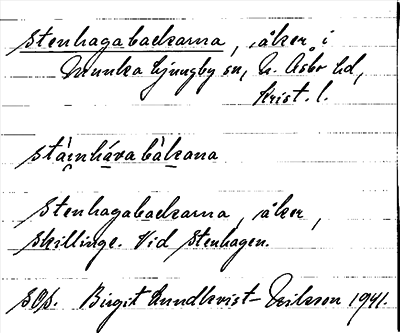 Stenhagabackarna, åker i
Munka Ljungby sn, N. Åsbo hd,
Krist. l.
stàinhávabàkana
Stenhagabackarna, åker,
Skillinge. Vid Stenhagen.
sOp. Birgit Lundkvist-Eriksson 1941.